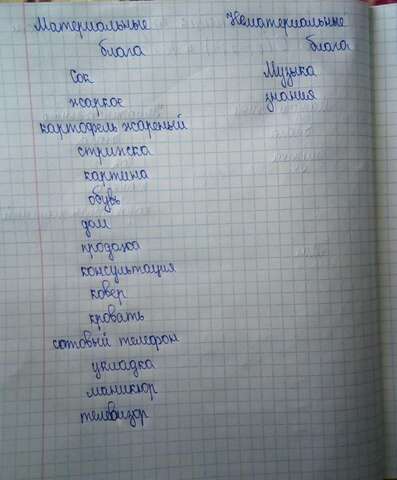 Материальные Нематериальные
блага блага
Сок Музыка
жаркое знания
картофель жареный
стрижка
картина
обувь
дом
продажа
консультация
ковер
кровать
сотовый телефон
укладка
маникюр
телевизор